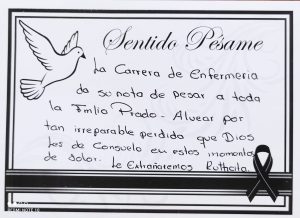 Sentido Pésame
La Carrera de Enfermeria
da su nota de pesar a toda
la Fmlia Prado - Alvear por
tan irreparable perdida que Dios
les de Consuelo en estos momentos
de dolor. Le Extrañaremos Ruthcita.